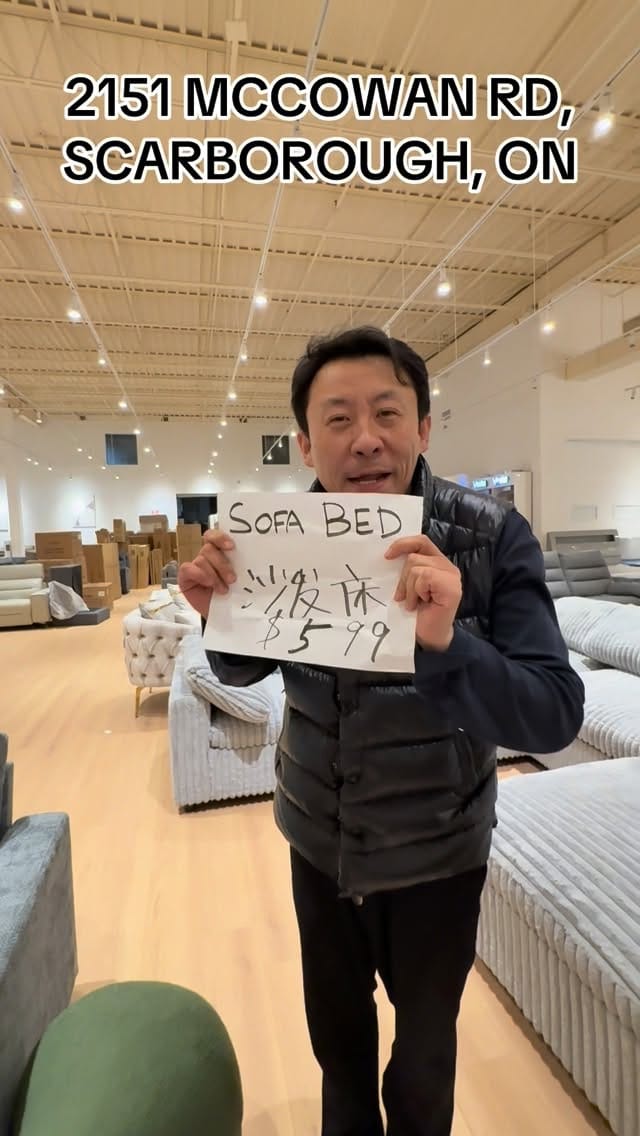 2151 MCCOWAN RD,
SCARBOROUGH, ON
SOFA BED
沙发床
$599